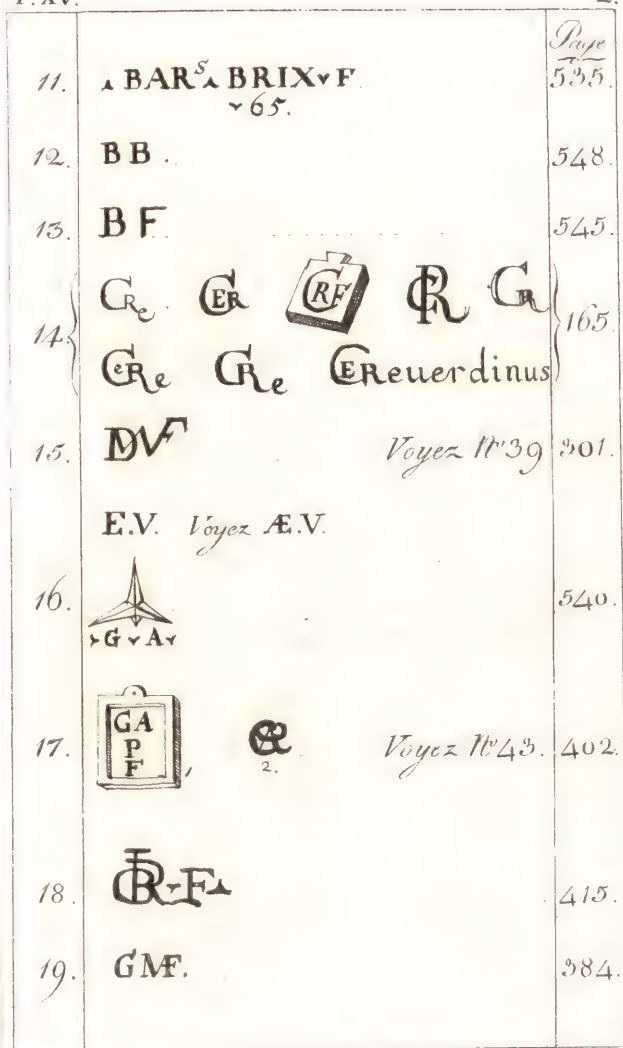 P. XV. 2.
Page
11. BAR^S BRIX F 535.
65.
12. B B . 548.
13. B F 545.
14. CRe CER CRF CR CR 165.
CeRe CRe CEReuerdinus
15. DMVF Voyez N° 39 301.
E.V. Voyez Æ.V.
16. G A 540.
17. GA Voyez N° 43. 402.
P
F
2.
18. F 415.
19. GMF. 384.